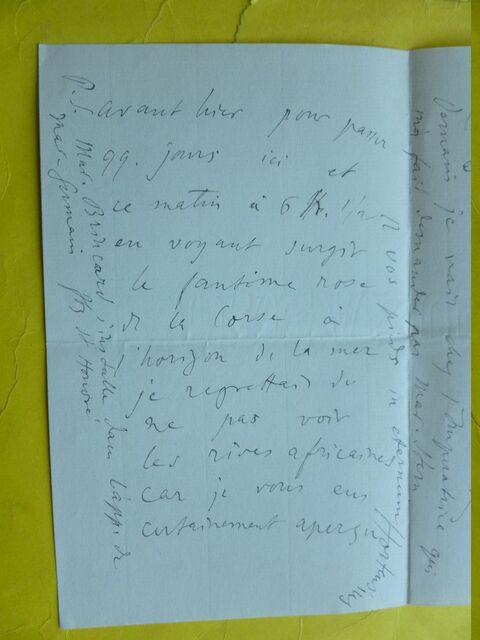 avant hier pour passer
qq. jours ici et
ce matin à 6 h. 1/2
en voyant surgir
le fantôme rose
de la Corse à
l'horizon de la mer
je regrettais de
ne pas voir
les rives africaines
car je vous eus
certainement aperçu
A vos pieds in eternum
P.S. Mad. Brincard s'installe dans l'app. de
Mad. Germain St Honoré.
Demain je vais chez l'Impératrice qui
m'a fait demander par Mad.